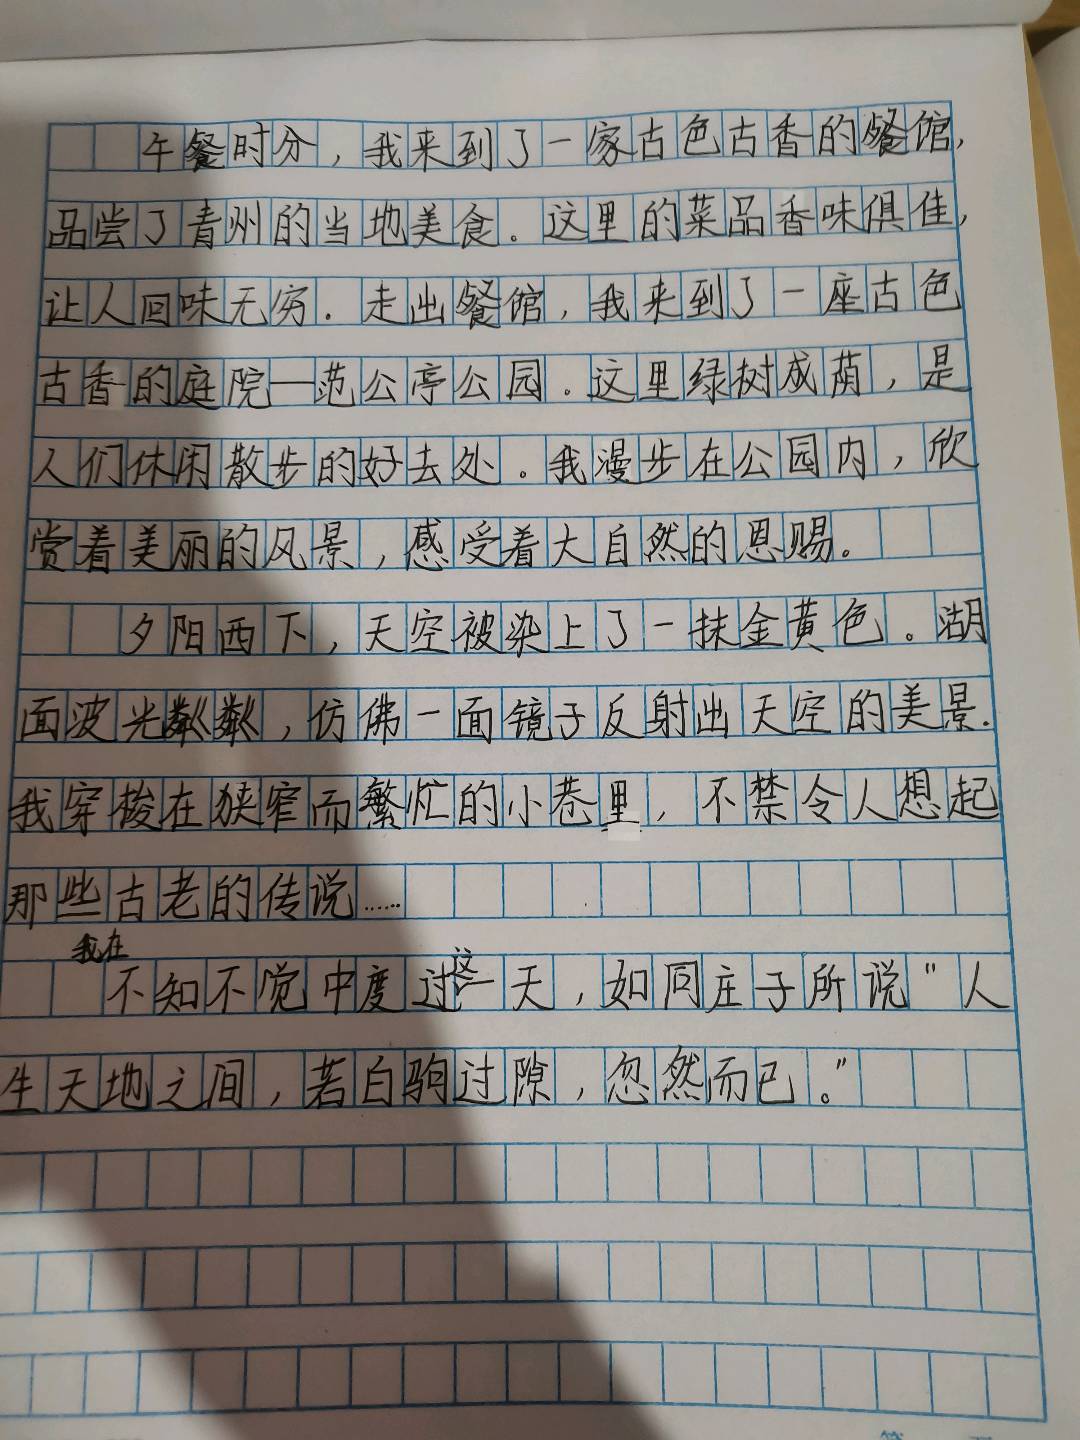 午餐时分，我来到了一家古色古香的餐馆，
品尝了青州的当地美食。这里的菜品香味俱佳，
让人回味无穷．走出餐馆，我来到了一座古色
古香的庭院—范公亭公园．这里绿树成荫，是
人们休闲散步的好去处。我漫步在公园内，欣
赏着美丽的风景，感受着大自然的恩赐。
夕阳西下，天空被染上了一抹金黄色．湖
面波光粼粼，仿佛一面镜子反射出天空的美景．
我穿梭在狭窄而繁忙的小巷里，不禁令人想起
那些古老的传说……
我在不知不觉中度过这一天，如同庄子所说“人
生天地之间，若白驹过隙，忽然而已。”